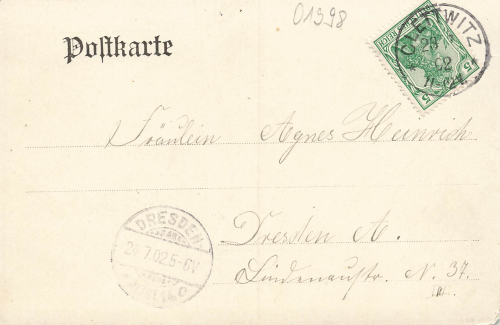 01398
Postkarte
GLEIWITZ
02
5 5
Fräulein Agnes Heinrich
Dresden A.
Lindenaustr. N. 37.
DRESDEN
7.02.5-6V